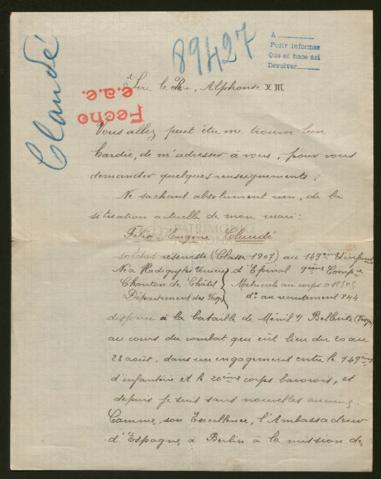 Claudé
89427
A
Pedir informes
Que se hace así
Devolver
Fecho
e.a.e.
À Sire le Roi, Alphonse XIII
Vous allez peut être me trouver bien
hardie, de m'adresser à vous, pour vous
demander quelques renseignements,
Ne sachant absolument rien, de la
situation actuelle de mon mari:
Félix Eugène Claudé
soldat réserviste (Classe 1907) au 149ème d'infanterie
Né à Hadigny les
d'Epinal 9ème Comp
Canton de Châtel
Matricule au corps
Département des Vosges
d° au recrutement 844
disparu à la bataille de Ménil s/ Belvitte (Vosges)
au cours du combat qui eût lieu du 20 au
28 août, dans un engagement entre le 149ème
d'infanterie et le 20ème corps bavarois, et
depuis je suis sans nouvelles aucunes
Comme, son Excellence, l'Ambassadeur
d'Espagne à Berlin à la mission de